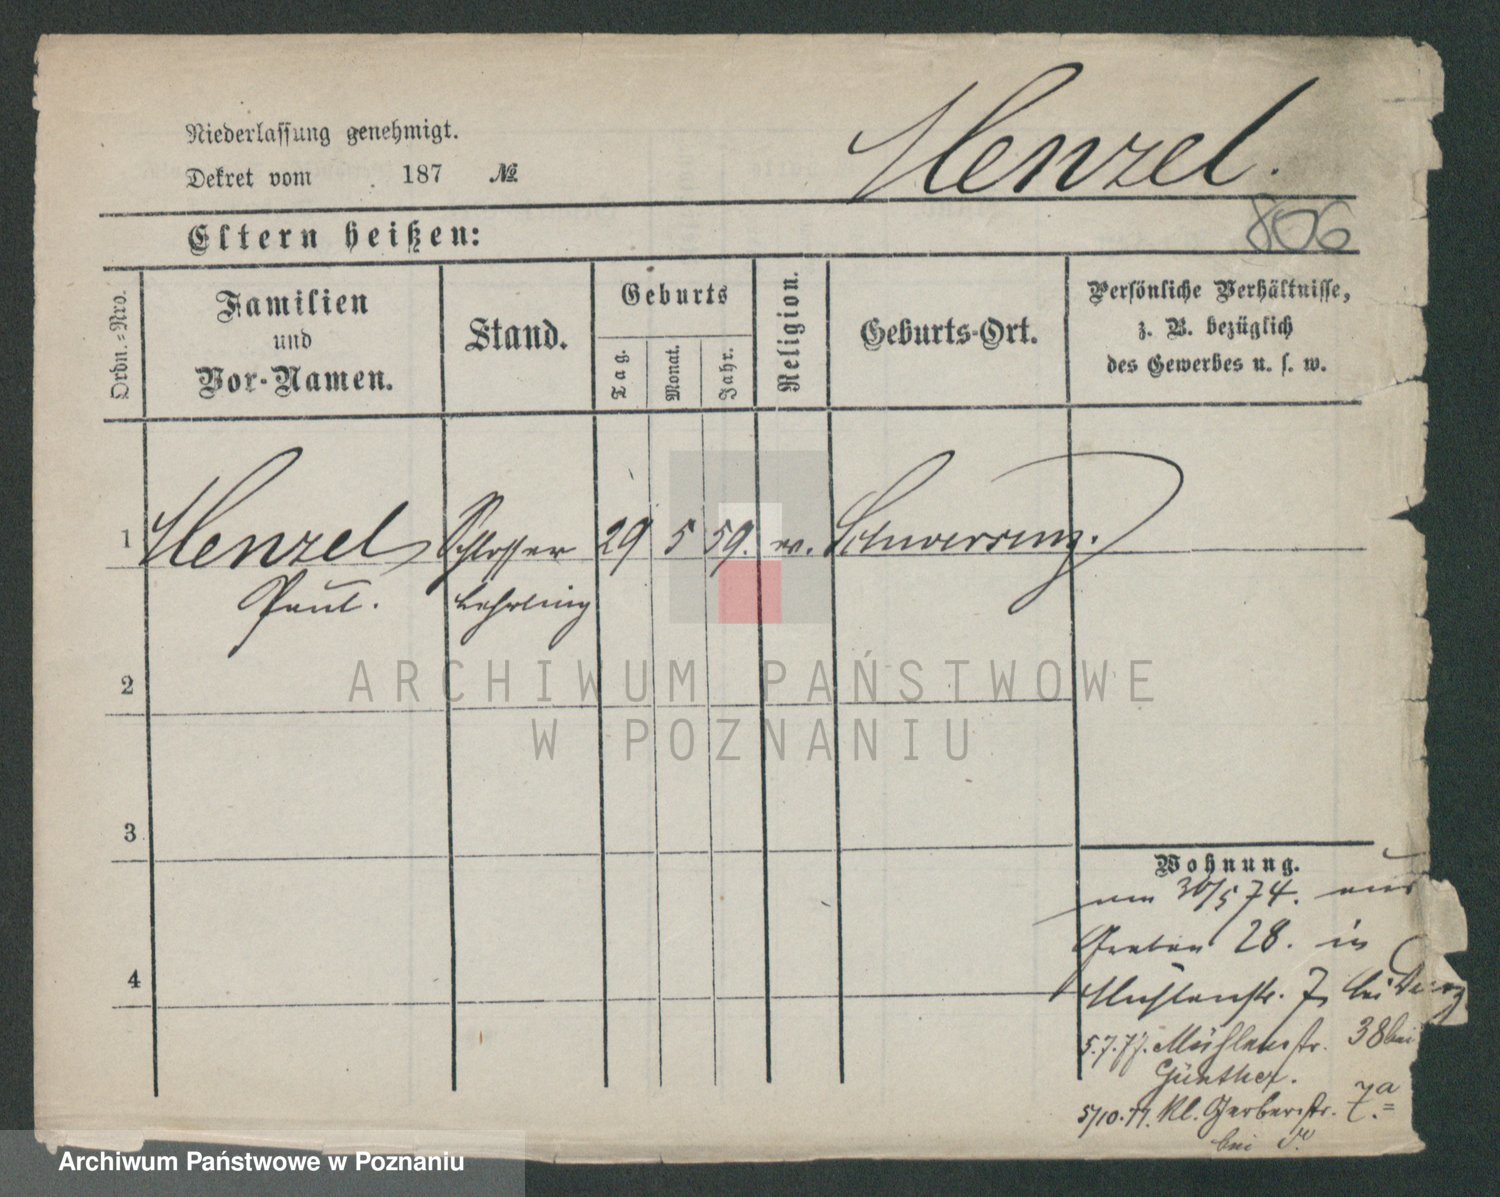 Niederlassung genehmigt.
Dekret vom 187 №
Henzel.
806
Eltern heißen:
Ordn.-Nro.
Familien
und
Vor-Namen.
Stand.
Geburts
Tag.
Monat.
Jahr.
Religion.
Geburts-Ort.
Persönliche Verhältnisse,
z. B. bezüglich
des Gewerbes u. s. w.
1 Henzel Schlosser 29 5 59. ev. Schwersenz.
Paul. Lehrling
2
3
4
Wohnung.
am 30/5 74. aus
Graben 28. in
Mühlenstr. 7 bei
5.7.77. Mühlenstr. 38 bei
Günther.
5/10.77. Kl. Gerberstr. 7.a
bei
ARCHIWUM PAŃSTWOWE
W POZNANIU
Archiwum Państwowe w Poznaniu